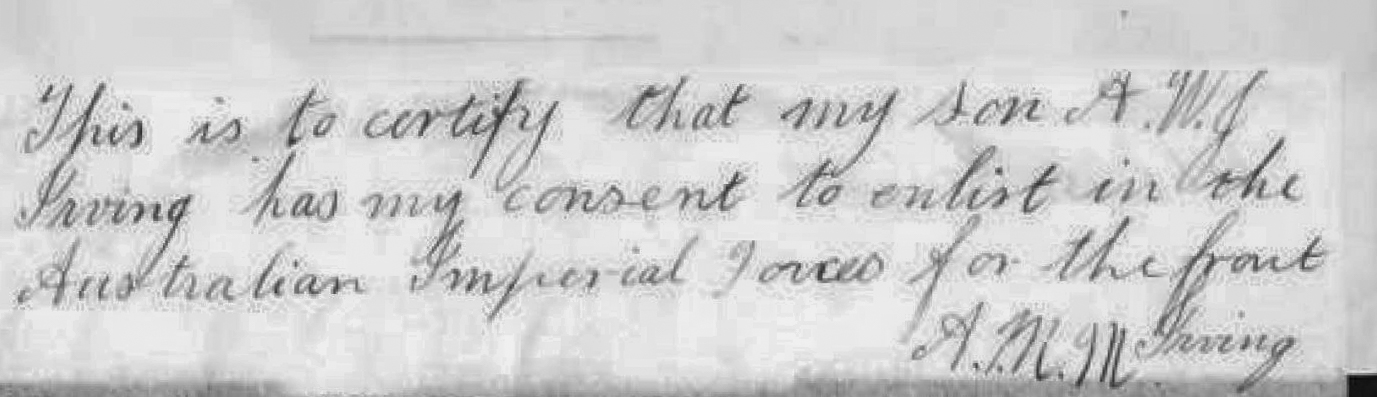 This is to certify that my son A.W.J
Irving has my consent to enlist in the
Australian Imperial Forces for the front
A.W.M Irving